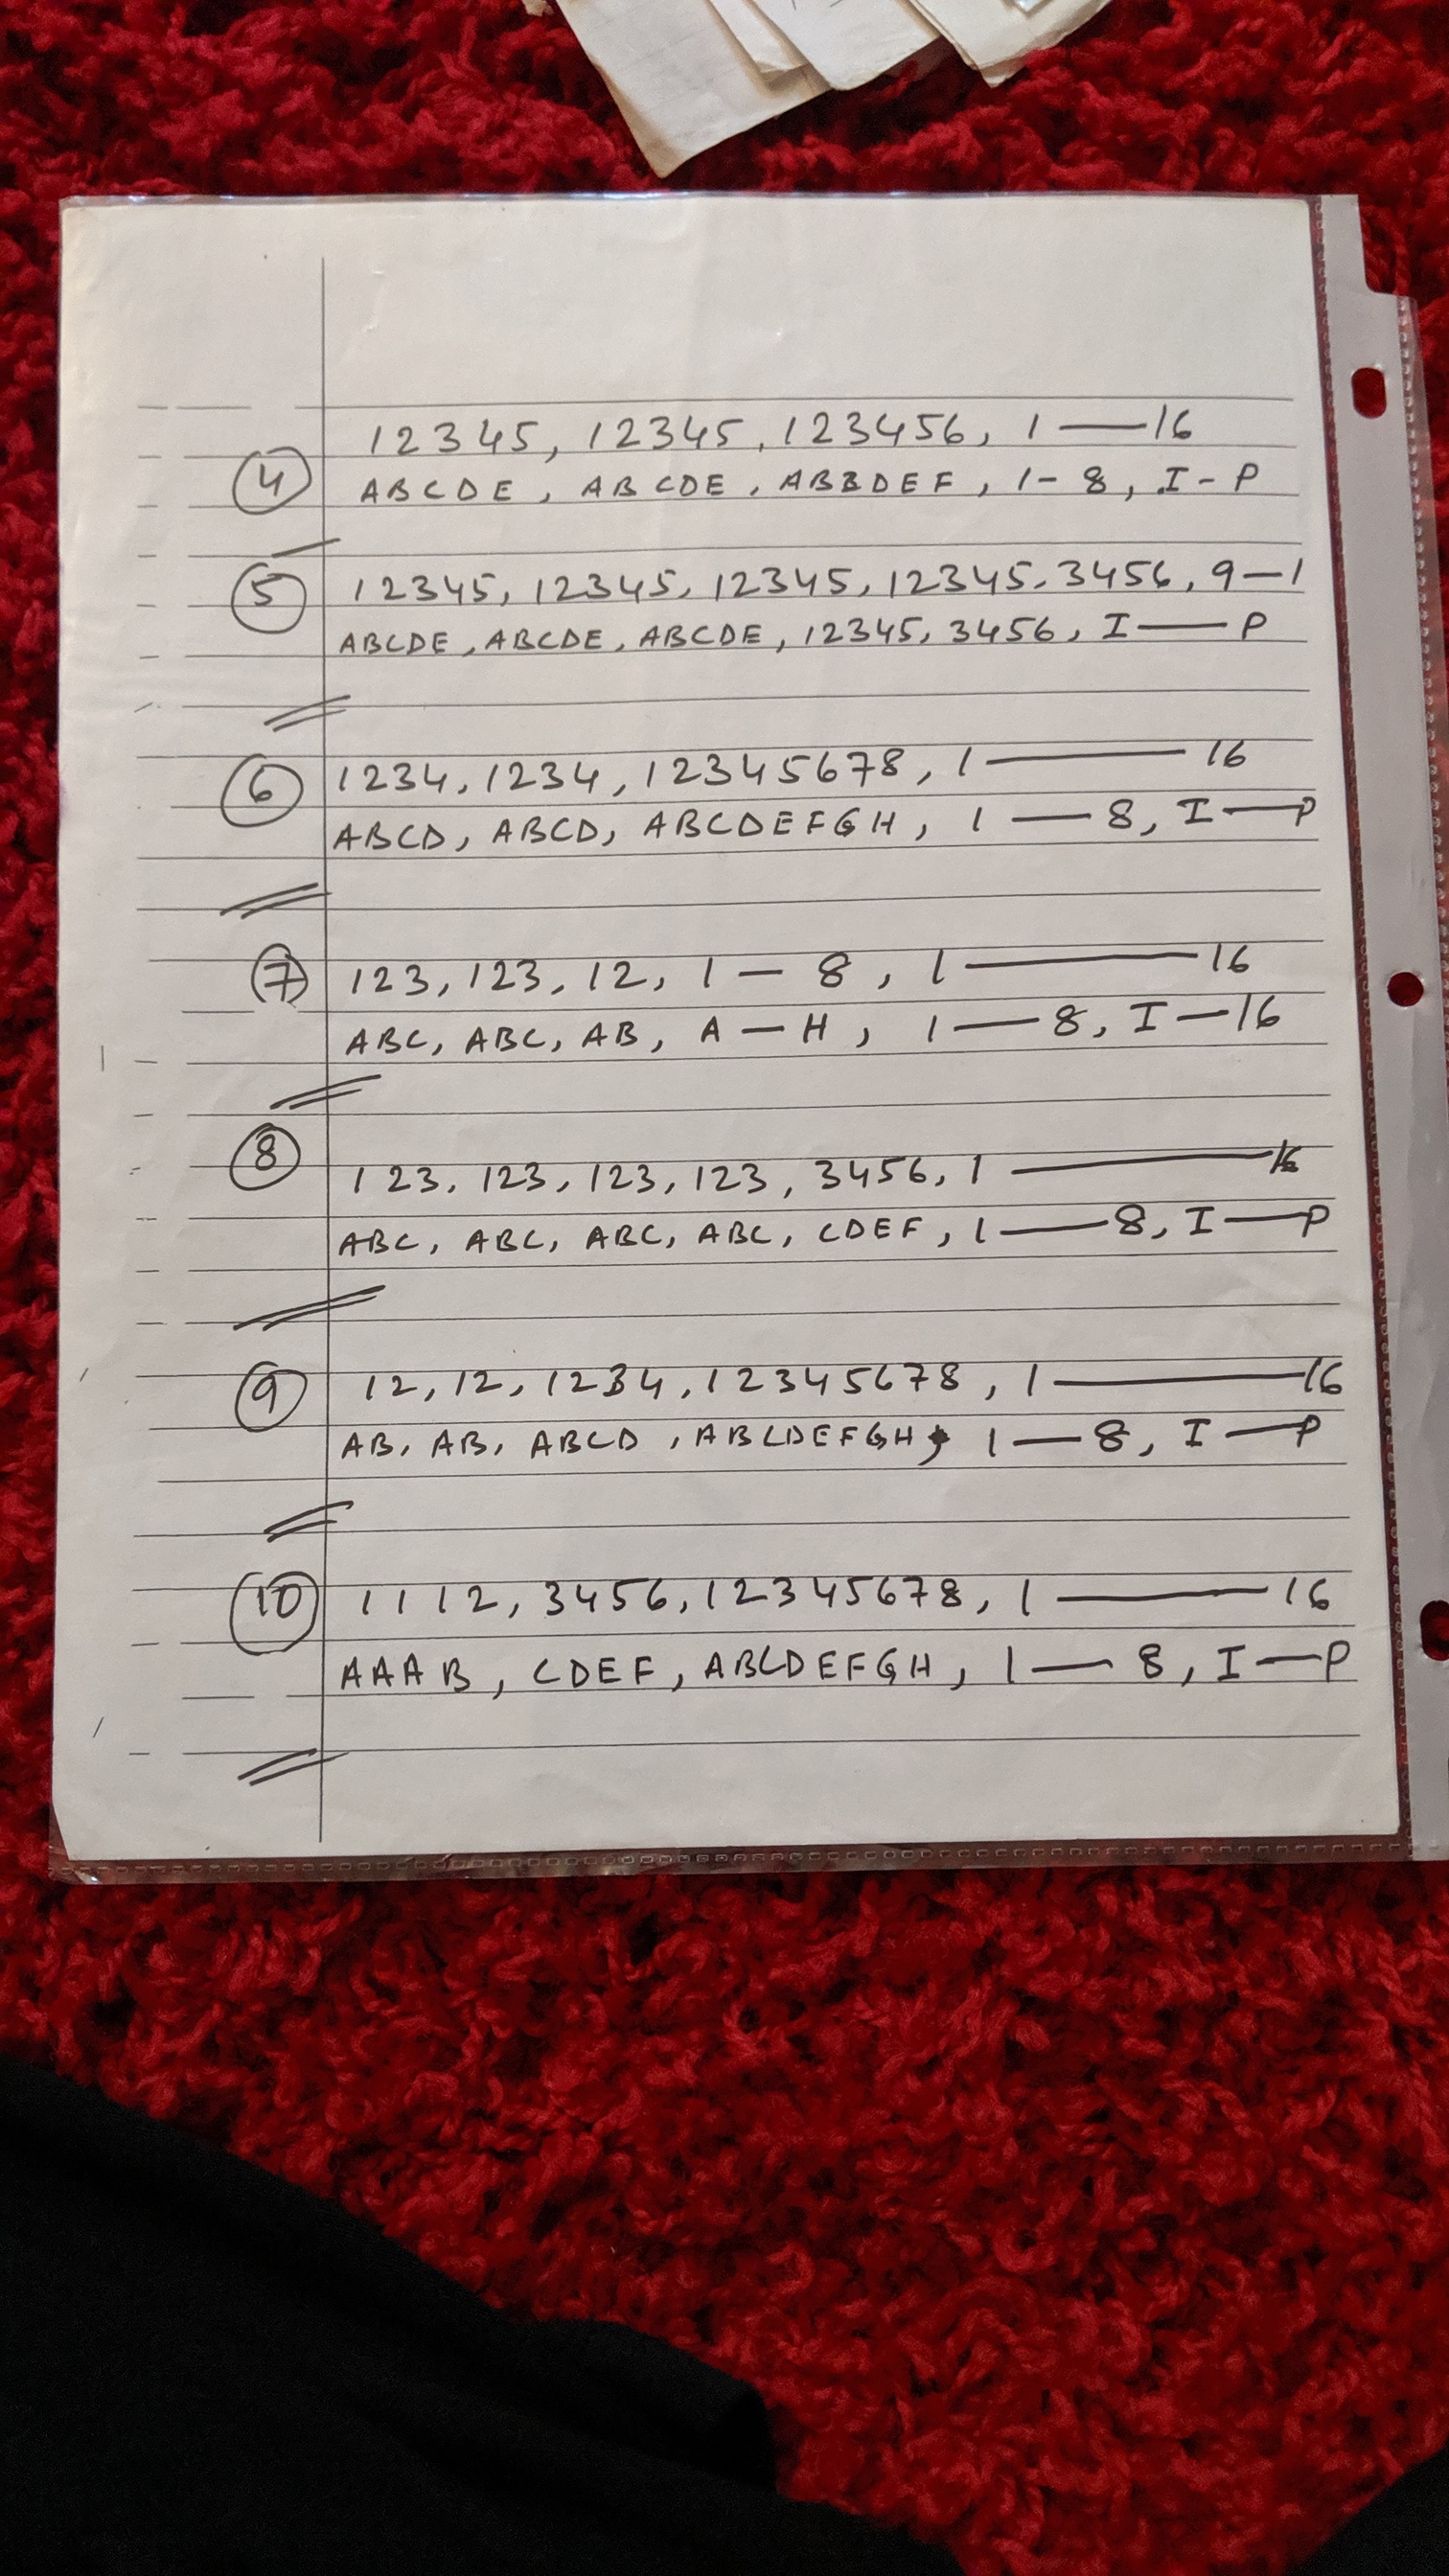 12345, 12345, 123456, 1——16
④ ABCDE, ABCDE, ABBDEF, 1-8, I-P
⑤ 12345, 12345, 12345, 12345, 3456, 9—1
ABCDE, ABCDE, ABCDE, 12345, 3456, I——P
⑥ 1234, 1234, 12345678, 1——16
ABCD, ABCD, ABCDEFGH, 1——8, I——P
⑦ 123, 123, 12, 1—8, 1——16
ABC, ABC, AB, A—H, 1——8, I—16
⑧ 123, 123, 123, 123, 3456, 1——16
ABC, ABC, ABC, ABC, CDEF, 1——8, I——P
⑨ 12, 12, 1234, 12345678, 1——16
AB, AB, ABCD, ABCDEFGH, 1—8, I——P
⑩ 1112, 3456, 12345678, 1——16
AAAB, CDEF, ABCDEFGH, 1—8, I—P